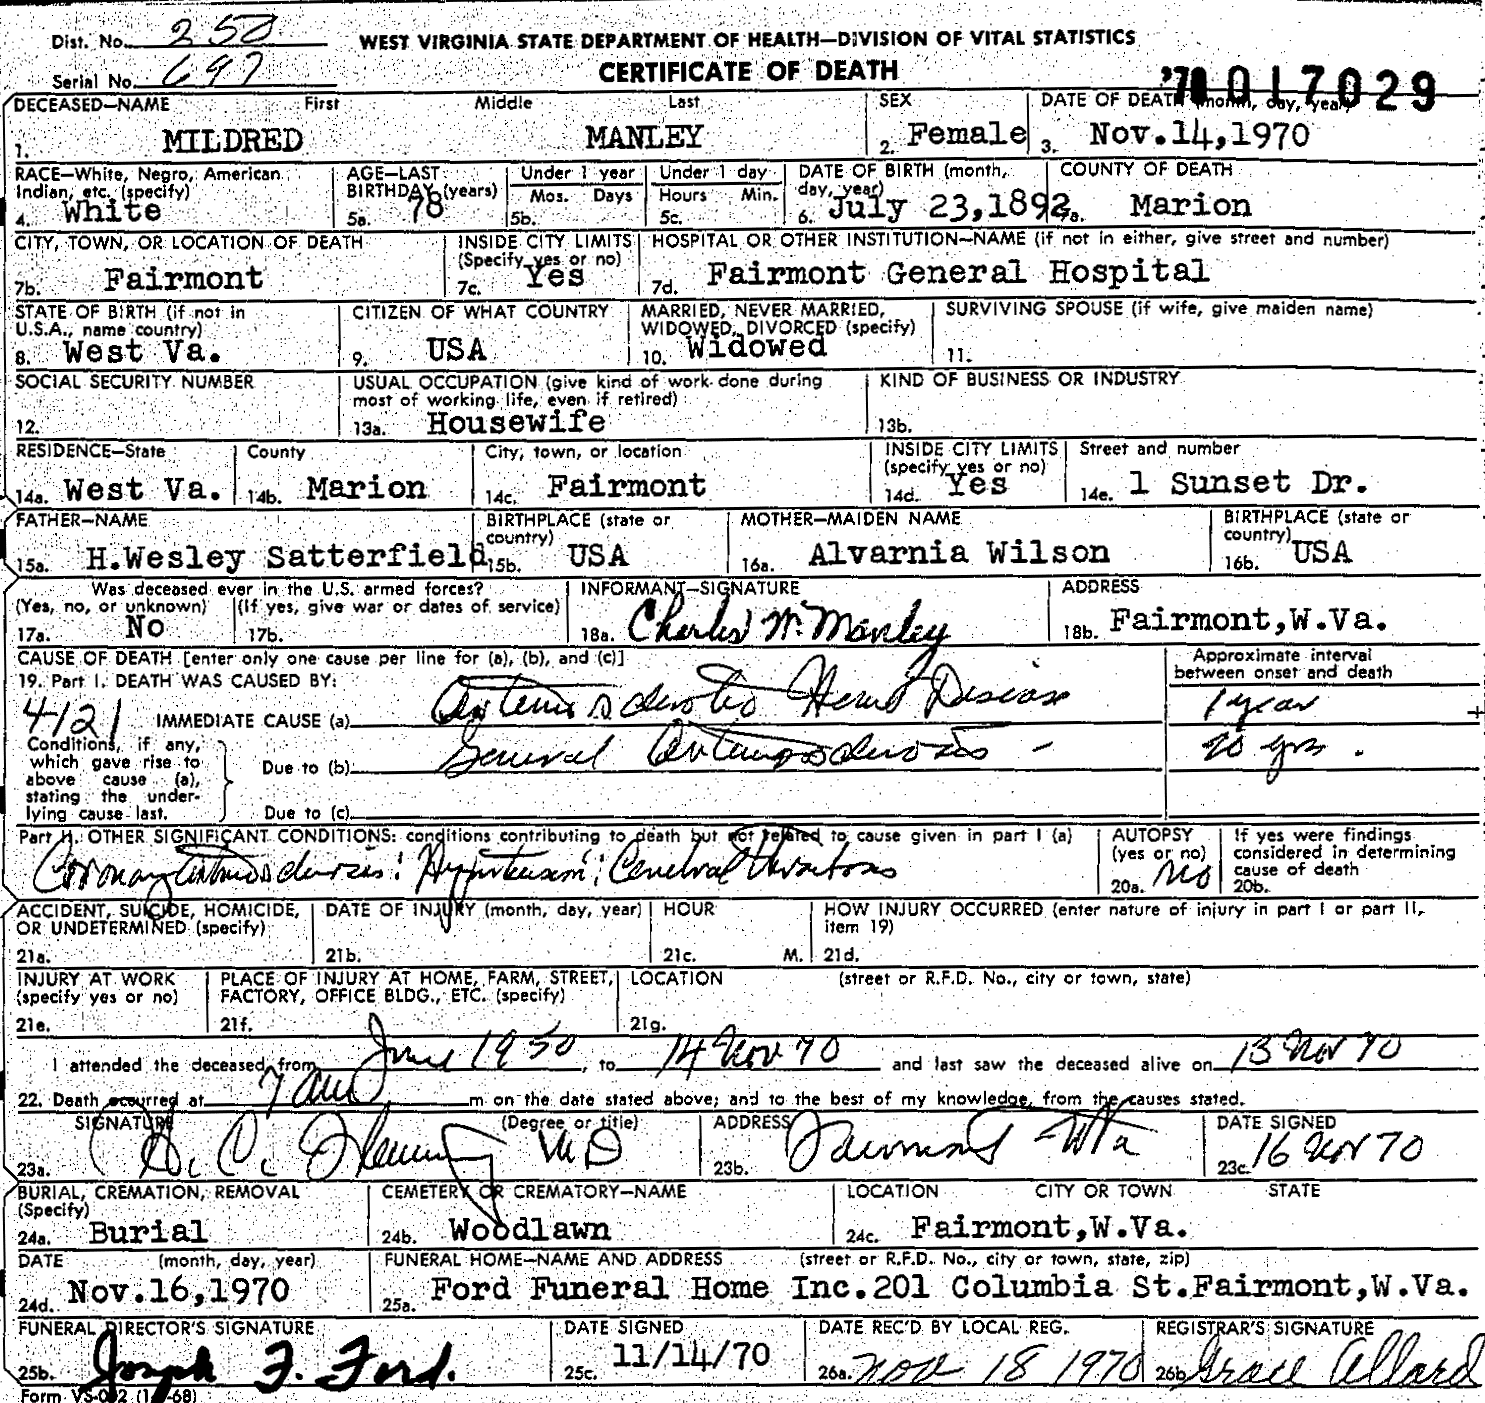 Dist. No. 250
WEST VIRGINIA STATE DEPARTMENT OF HEALTH—DIVISION OF VITAL STATISTICS
Serial No. 697
CERTIFICATE OF DEATH
017029
DECEASED—NAME First Middle Last SEX DATE OF DEATH (month, day, year)
1. MILDRED MANLEY 2. Female 3. Nov.14,1970
RACE—White, Negro, American Indian, etc. (specify)
4. White
AGE—LAST BIRTHDAY (years)
5a. 78
Under 1 year Mos. Days
5b.
Under 1 day Hours Min.
5c.
DATE OF BIRTH (month, day, year)
6. July 23,1892
COUNTY OF DEATH
7a. Marion
CITY, TOWN, OR LOCATION OF DEATH
7b. Fairmont
INSIDE CITY LIMITS (Specify yes or no)
7c. Yes
HOSPITAL OR OTHER INSTITUTION—NAME (if not in either, give street and number)
7d. Fairmont General Hospital
STATE OF BIRTH (if not in U.S.A., name country)
8. West Va.
CITIZEN OF WHAT COUNTRY
9. USA
MARRIED, NEVER MARRIED, WIDOWED, DIVORCED (specify)
10. Widowed
SURVIVING SPOUSE (if wife, give maiden name)
11.
SOCIAL SECURITY NUMBER
12.
USUAL OCCUPATION (give kind of work done during most of working life, even if retired)
13a. Housewife
KIND OF BUSINESS OR INDUSTRY
13b.
RESIDENCE—State
14a. West Va.
County
14b. Marion
City, town, or location
14c. Fairmont
INSIDE CITY LIMITS (specify yes or no)
14d. Yes
Street and number
14e. 1 Sunset Dr.
FATHER—NAME
15a. H.Wesley Satterfield
BIRTHPLACE (state or country)
15b. USA
MOTHER—MAIDEN NAME
16a. Alvarnia Wilson
BIRTHPLACE (state or country)
16b. USA
Was deceased ever in the U.S. armed forces?
(Yes, no, or unknown) (If yes, give war or dates of service)
17a. No 17b.
INFORMANT—SIGNATURE
18a. Charles W. Manley
ADDRESS
18b. Fairmont,W.Va.
CAUSE OF DEATH [enter only one cause per line for (a), (b), and (c)]
Approximate interval between onset and death
19. Part I. DEATH WAS CAUSED BY:
4121
IMMEDIATE CAUSE (a) Arteriosclerotic Heart Disease 1 year
Conditions, if any, which gave rise to above cause (a), stating the underlying cause last.
Due to (b) General Arteriosclerosis - 20 yrs.
Due to (c)
Part II. OTHER SIGNIFICANT CONDITIONS: conditions contributing to death but not related to cause given in part I (a)
Coronary arteriosclerosis; Hypertension; Cerebral thrombosis
AUTOPSY (yes or no)
20a. No
If yes were findings considered in determining cause of death
20b.
ACCIDENT, SUICIDE, HOMICIDE, OR UNDETERMINED (specify)
21a.
DATE OF INJURY (month, day, year)
21b.
HOUR
21c. M.
HOW INJURY OCCURRED (enter nature of injury in part I or part II, item 19)
21d.
INJURY AT WORK (specify yes or no)
21e.
PLACE OF INJURY AT HOME, FARM, STREET, FACTORY, OFFICE BLDG., ETC. (specify)
21f.
LOCATION (street or R.F.D. No., city or town, state)
21g.
I attended the deceased from June 1950, to 14 Nov 70 and last saw the deceased alive on 13 Nov 70
22. Death occurred at 7 am m on the date stated above; and to the best of my knowledge, from the causes stated.
SIGNATURE (Degree or title)
23a. MD
ADDRESS
23b. Fairmont W Va
DATE SIGNED
23c. 16 Nov 70
BURIAL, CREMATION, REMOVAL (Specify)
24a. Burial
CEMETERY OR CREMATORY—NAME
24b. Woodlawn
LOCATION CITY OR TOWN STATE
24c. Fairmont,W.Va.
DATE (month, day, year)
24d. Nov.16,1970
FUNERAL HOME—NAME AND ADDRESS (street or R.F.D. No., city or town, state, zip)
25a. Ford Funeral Home Inc.201 Columbia St.Fairmont,W.Va.
FUNERAL DIRECTOR'S SIGNATURE
25b. Joseph F. Ford.
DATE SIGNED
25c. 11/14/70
DATE REC'D BY LOCAL REG.
26a. Nov 18 1970
REGISTRAR'S SIGNATURE
26b. Grace Allard